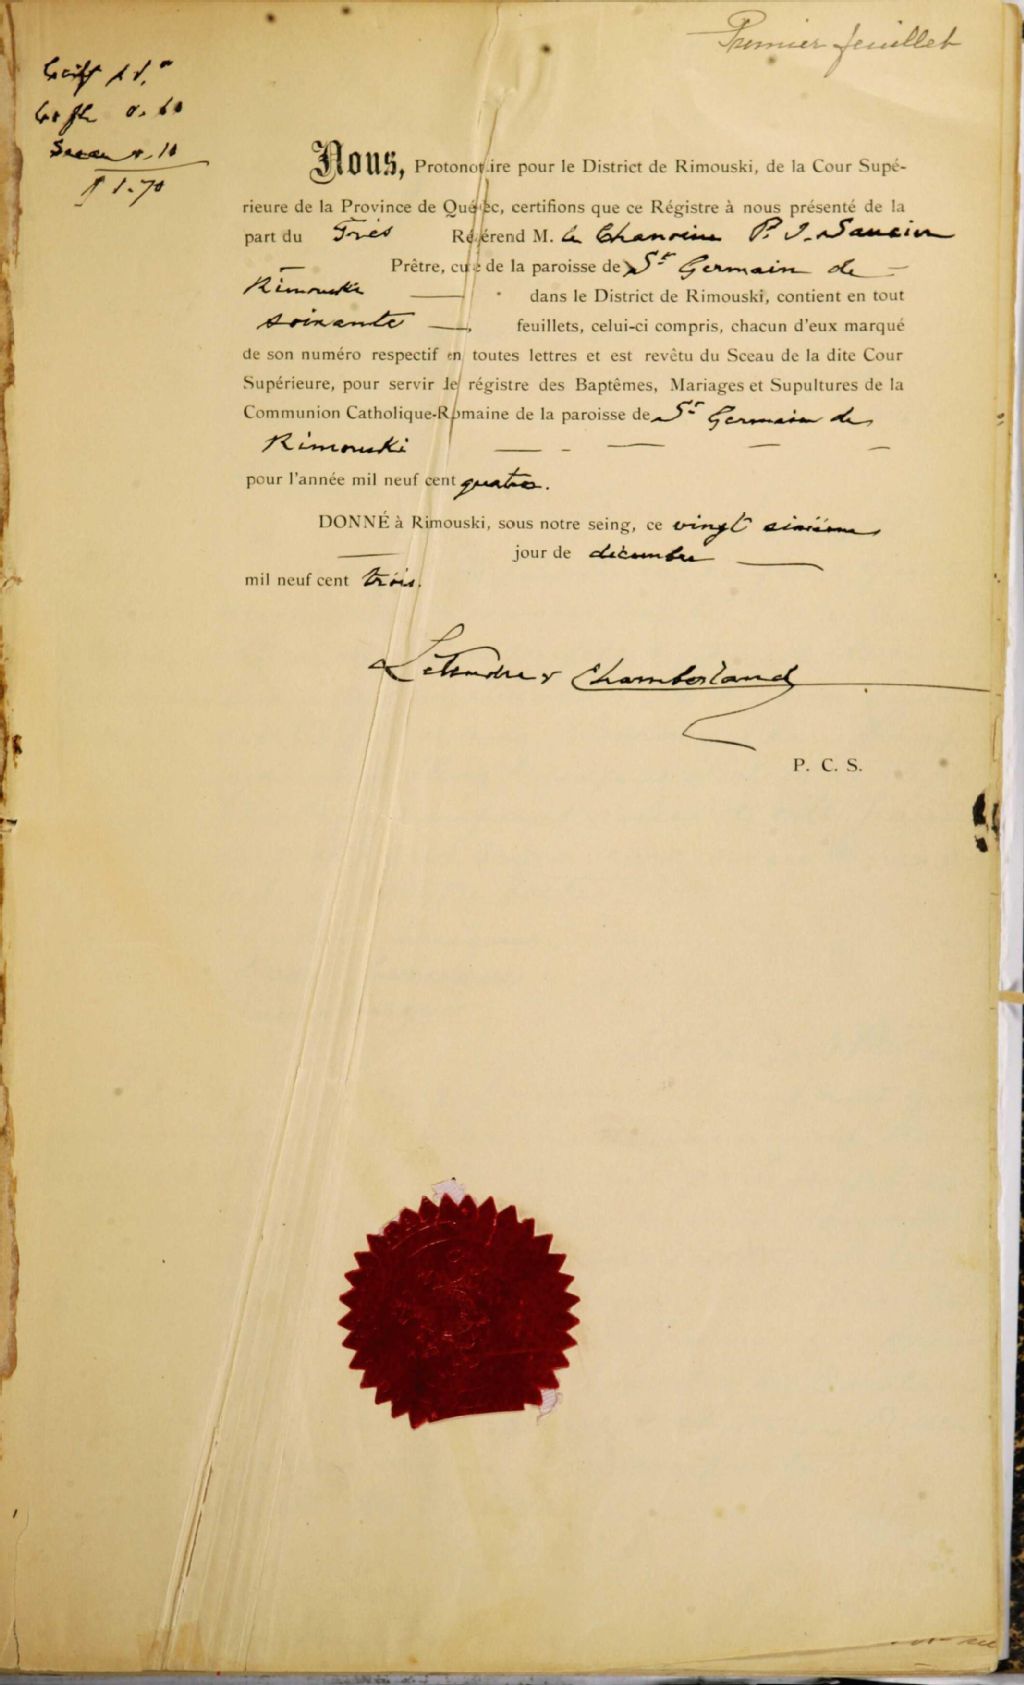 Premier feuillet
Certf $1.-
60 fts 0.60
Sceau 0.10
$1.70
Nous, Protonotaire pour le District de Rimouski, de la Cour Supé-
rieure de la Province de Québec, certifions que ce Régistre à nous présenté de la
part du Très Révérend M. le Chanoine P. J. Saucier
Prêtre, curé de la paroisse de St Germain de
Rimouski dans le District de Rimouski, contient en tout
soixante feuillets, celui-ci compris, chacun d'eux marqué
de son numéro respectif en toutes lettres et est revêtu du Sceau de la dite Cour
Supérieure, pour servir de régistre des Baptêmes, Mariages et Supultures de la
Communion Catholique-Romaine de la paroisse de St Germain de
Rimouski
pour l'année mil neuf cent quatre.
DONNÉ à Rimouski, sous notre seing, ce vingt sixième
jour de décembre
mil neuf cent trois.
Letendre & Chamberland
P. C. S.